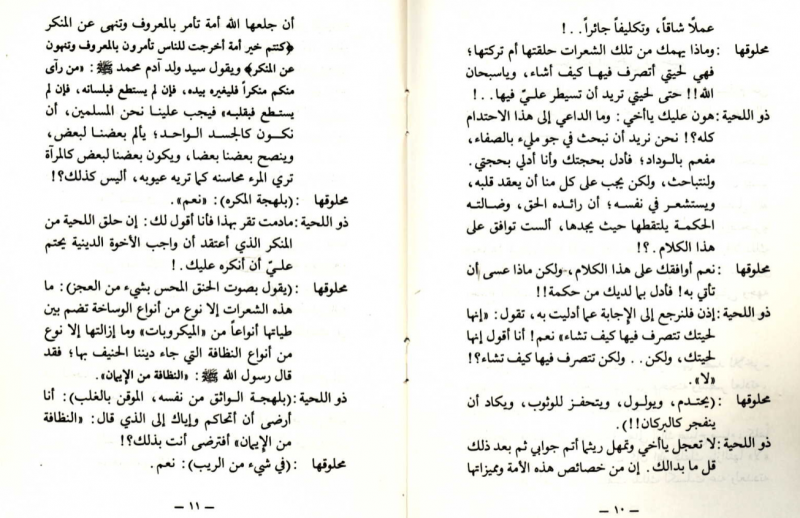 عملًا شاقاً، وتكليفاً جائراً. .!
محلوقها : وماذا يهمك من تلك الشعرات حلقتها أم تركتها؛
فهي لحيتي أتصرف فيها كيف أشاء، وياسبحان
الله!! حتى لحيتي تريد أن تسيطر عليّ فيها. .!
ذو اللحية: هون عليك ياأخي: وما الداعي إلى هذا الاحتدام
كله؟! نحن نريد أن نبحث في جو مليء بالصفاء،
مفعم بالوداد؛ فأدل بحجتك وأنا أدلي بحجتي.
ولنتباحث، ولكن يجب على كل منا أن يعقد قلبه،
ويستشعر في نفسه؛ أن رائده الحق، وضالته
الحكمة يلتقطها حيث يجدها، ألست توافق على
هذا الكلام.؟!
محلوقها : نعم أوافقك على هذا الكلام، ولكن ماذا عسى أن
تأتي به! فأدل بما لديك من حكمة!!
ذو اللحية: إذن فلنرجع إلى الإجابة عما أدليت به، تقول: «إنها
لحيتك تتصرف فيها كيف تشاء» نعم! أنا أقول إنها
لحيتك، ولكن.. ولكن تتصرف فيها كيف تشاء؟!
«لا».
محلوقها : (يحتدم، ويولول، ويتحفز للوثوب، ويكاد أن
ينفجر كالبركان!!).
ذو اللحية: لا تعجل ياأخي وتمهل ريثما أتم جوابي ثم بعد ذلك
قل ما بدالك. إن من خصائص هذه الأمة ومميزاتها
— ١٠ —
أن جلعها الله أمة تأمر بالمعروف وتنهى عن المنكر
﴿كنتم خير أمة أخرجت للناس تأمرون بالمعروف وتنهون
عن المنكر﴾ ويقول سيد ولد آدم محمد ﷺ: «من رأى
منكم منكراً فليغيره بيده، فإن لم يستطع فبلسانه، فإن لم
يستطع فبقلبه» فيجب علينا نحن المسلمين، أن
نكون كالجسد الواحد؛ يألم بعضنا لبعض،
وينصح بعضنا بعضا، ويكون بعضنا لبعض كالمرآة
تري المرء محاسنه كما تريه عيوبه، أليس كذلك؟!
محلوقها : (بلهجة المكره): «نعم».
ذو اللحية: مادمت تقر بهذا فأنا أقول لك: إن حلق اللحية من
المنكر الذي أعتقد أن واجب الأخوة الدينية يحتم
عليّ أن أنكره عليك.!
محلوقها : (يقول بصوت الحنق المحس بشيء من العجز): ما
هذه الشعرات إلا نوع من أنواع الوساخة تضم بين
طياتها أنواعاً من «الميكروبات» وما إزالتها إلا نوع
من أنواع النظافة التي جاء ديننا الحنيف بها؛ فقد
قال رسول الله ﷺ: «النظافة من الإيمان».
ذو اللحية: (بلهجة الواثق من نفسه، الموقن بالغلب): أنا
أرضى أن أتحاكم وإياك إلى الذي قال: «النظافة
من الإيمان» أفترضى أنت بذلك؟!
محلوقها : (في شيء من الريب): نعم.
— ١١ —